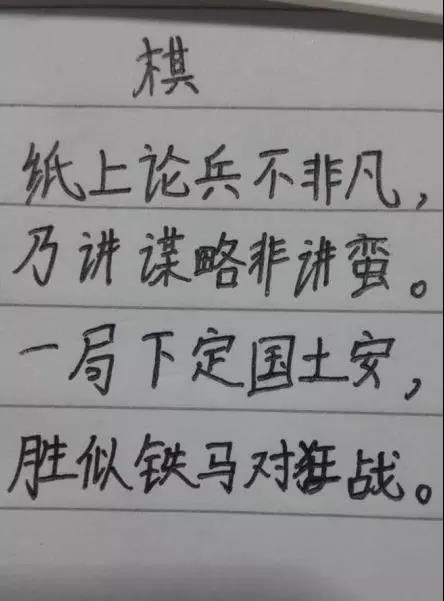 棋
纸上论兵不非凡，
乃讲谋略非讲蛮。
一局下定国土安，
胜似铁马对狂战。